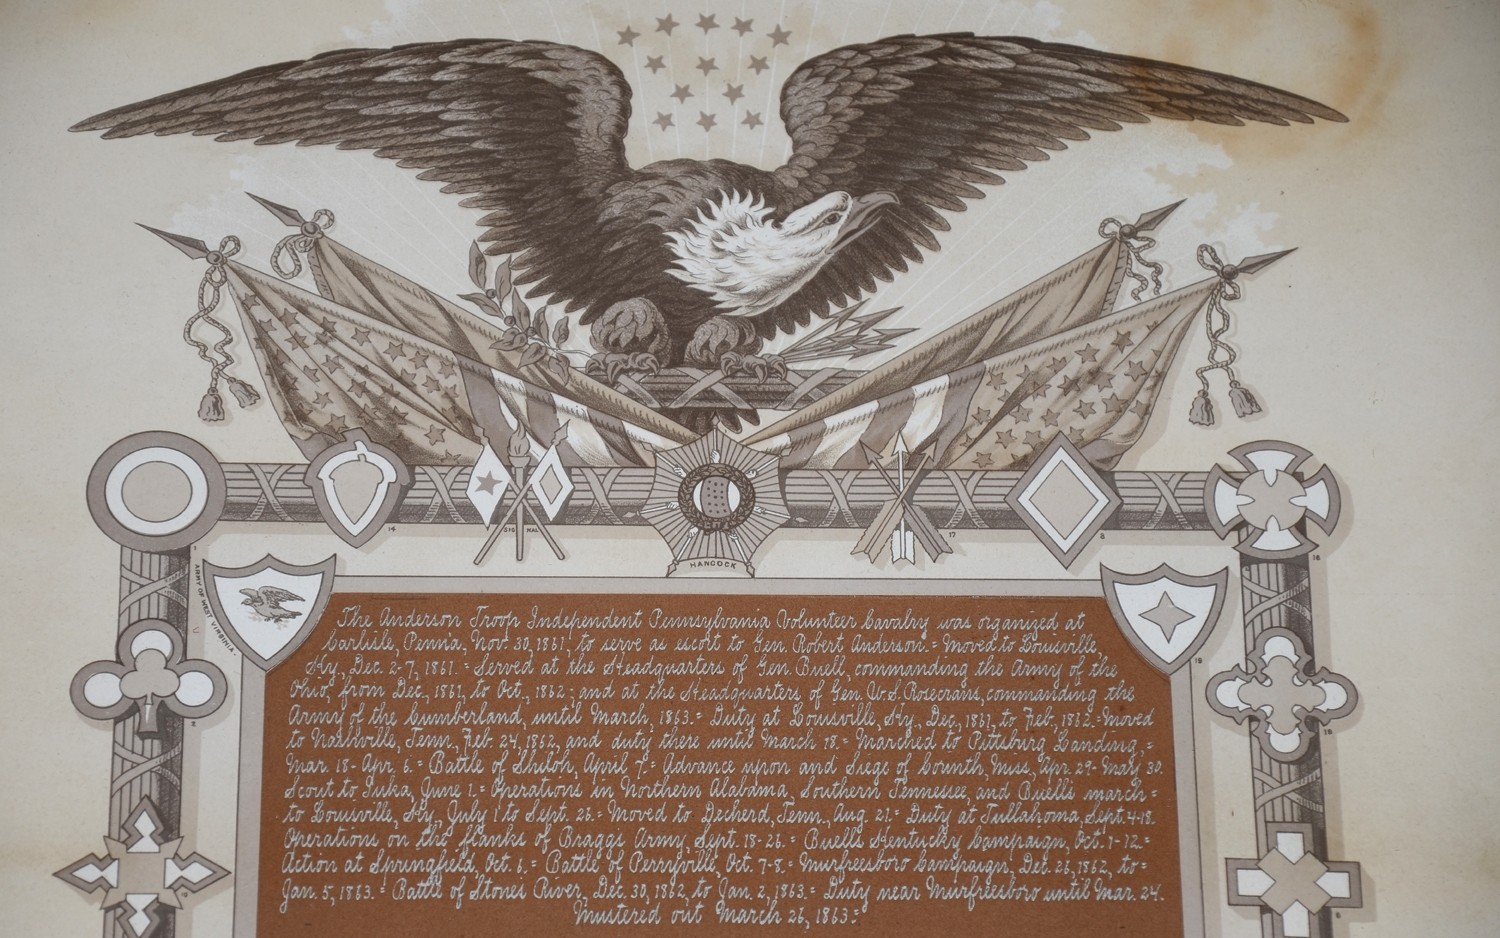 SIGNAL
HANCOCK
14
17
2
16
1
ARMY OF WEST VIRGINIA.
19
The Anderson Troop Independent Pennsylvania Volunteer Cavalry was organized at
Carlisle, Penn'a, Nov. 30, 1861, to serve as escort to Gen. Robert Anderson.= Moved to Louisville,
Ky., Dec. 2-7, 1861.= Served at the Headquarters of Gen. Buell, commanding the Army of the
Ohio, from Dec., 1861, to Oct., 1862; and at the Headquarters of Gen. W. S. Rosecrans, commanding the
Army of the Cumberland, until March, 1863.= Duty at Louisville, Ky., Dec., 1861, to Feb. 1862.= Moved
to Nashville, Tenn., Feb. 24, 1862, and duty there until March 18.= Marched to Pittsburg Landing,=
Mar. 18- Apr. 6.= Battle of Shiloh, April 7.= Advance upon and Siege of Corinth, Miss., Apr. 29- May 30.
Scout to Iuka, June 1.= Operations in Northern Alabama, Southern Tennessee, and Buell's march=
to Louisville, Ky., July 1 to Sept. 26.= Moved to Decherd, Tenn., Aug. 21.= Duty at Tullahoma, Sept. 4-18.
Operations on the flanks of Bragg's Army, Sept. 18-26.= Buell's Kentucky Campaign, Oct. 1-12.=
Action at Springfield, Oct. 6.= Battle of Perryville, Oct. 7-8.= Murfreesboro Campaign, Dec. 26, 1862, to=
Jan. 5, 1863.= Battle of Stones River, Dec. 30, 1862, to Jan. 2, 1863.= Duty near Murfreesboro until Mar. 24.
Mustered out March 26, 1863.=